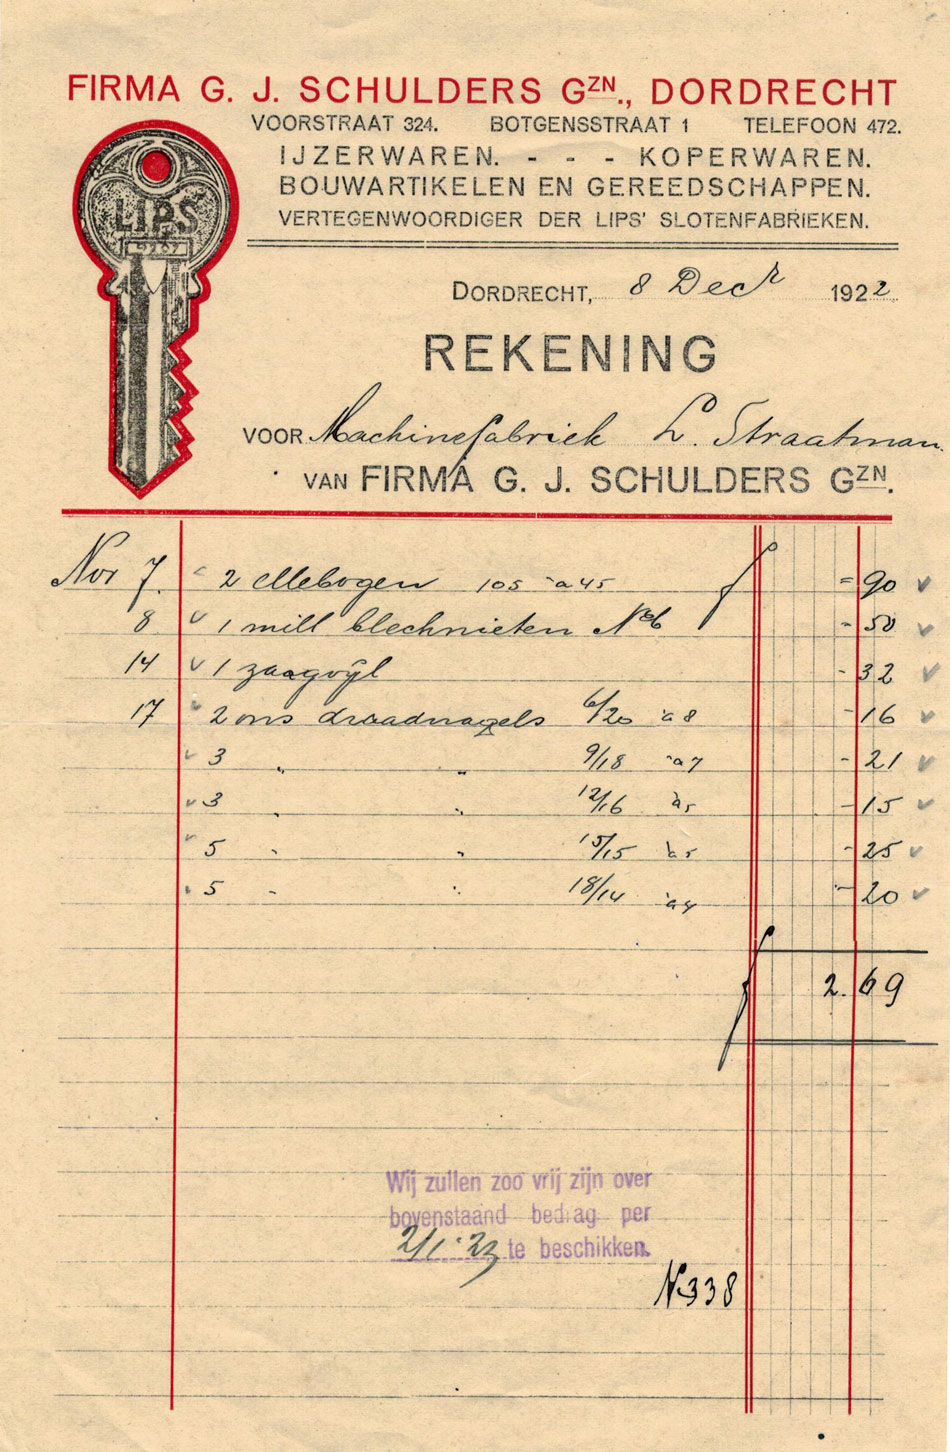 FIRMA G. J. SCHULDERS GZN., DORDRECHT
VOORSTRAAT 324. BOTGENSSTRAAT 1 TELEFOON 472.
IJZERWAREN. - - - KOPERWAREN.
BOUWARTIKELEN EN GEREEDSCHAPPEN.
VERTEGENWOORDIGER DER LIPS' SLOTENFABRIEKEN.
LIPS
DORDRECHT, 8 Decr 1922
REKENING
VOOR Machinefabriek L. Straatman
VAN FIRMA G. J. SCHULDERS GZN.
Nov 7. 2 ellebogen 105 à 45 f - 90
8 1 mill blechnieten No 6 - 50
14 1 zaagvijl - 32
17 2 ons draadnagels 6/20 à 8 - 16
3 " " 9/18 à 7 - 21
3 " " 12/16 à 5 - 15
5 " " 15/15 à 5 - 25
5 " " 18/14 à 4 - 20
f 2.69
Wij zullen zoo vrij zijn over
bovenstaand bedrag per
2/1.23 te beschikken.
N 338